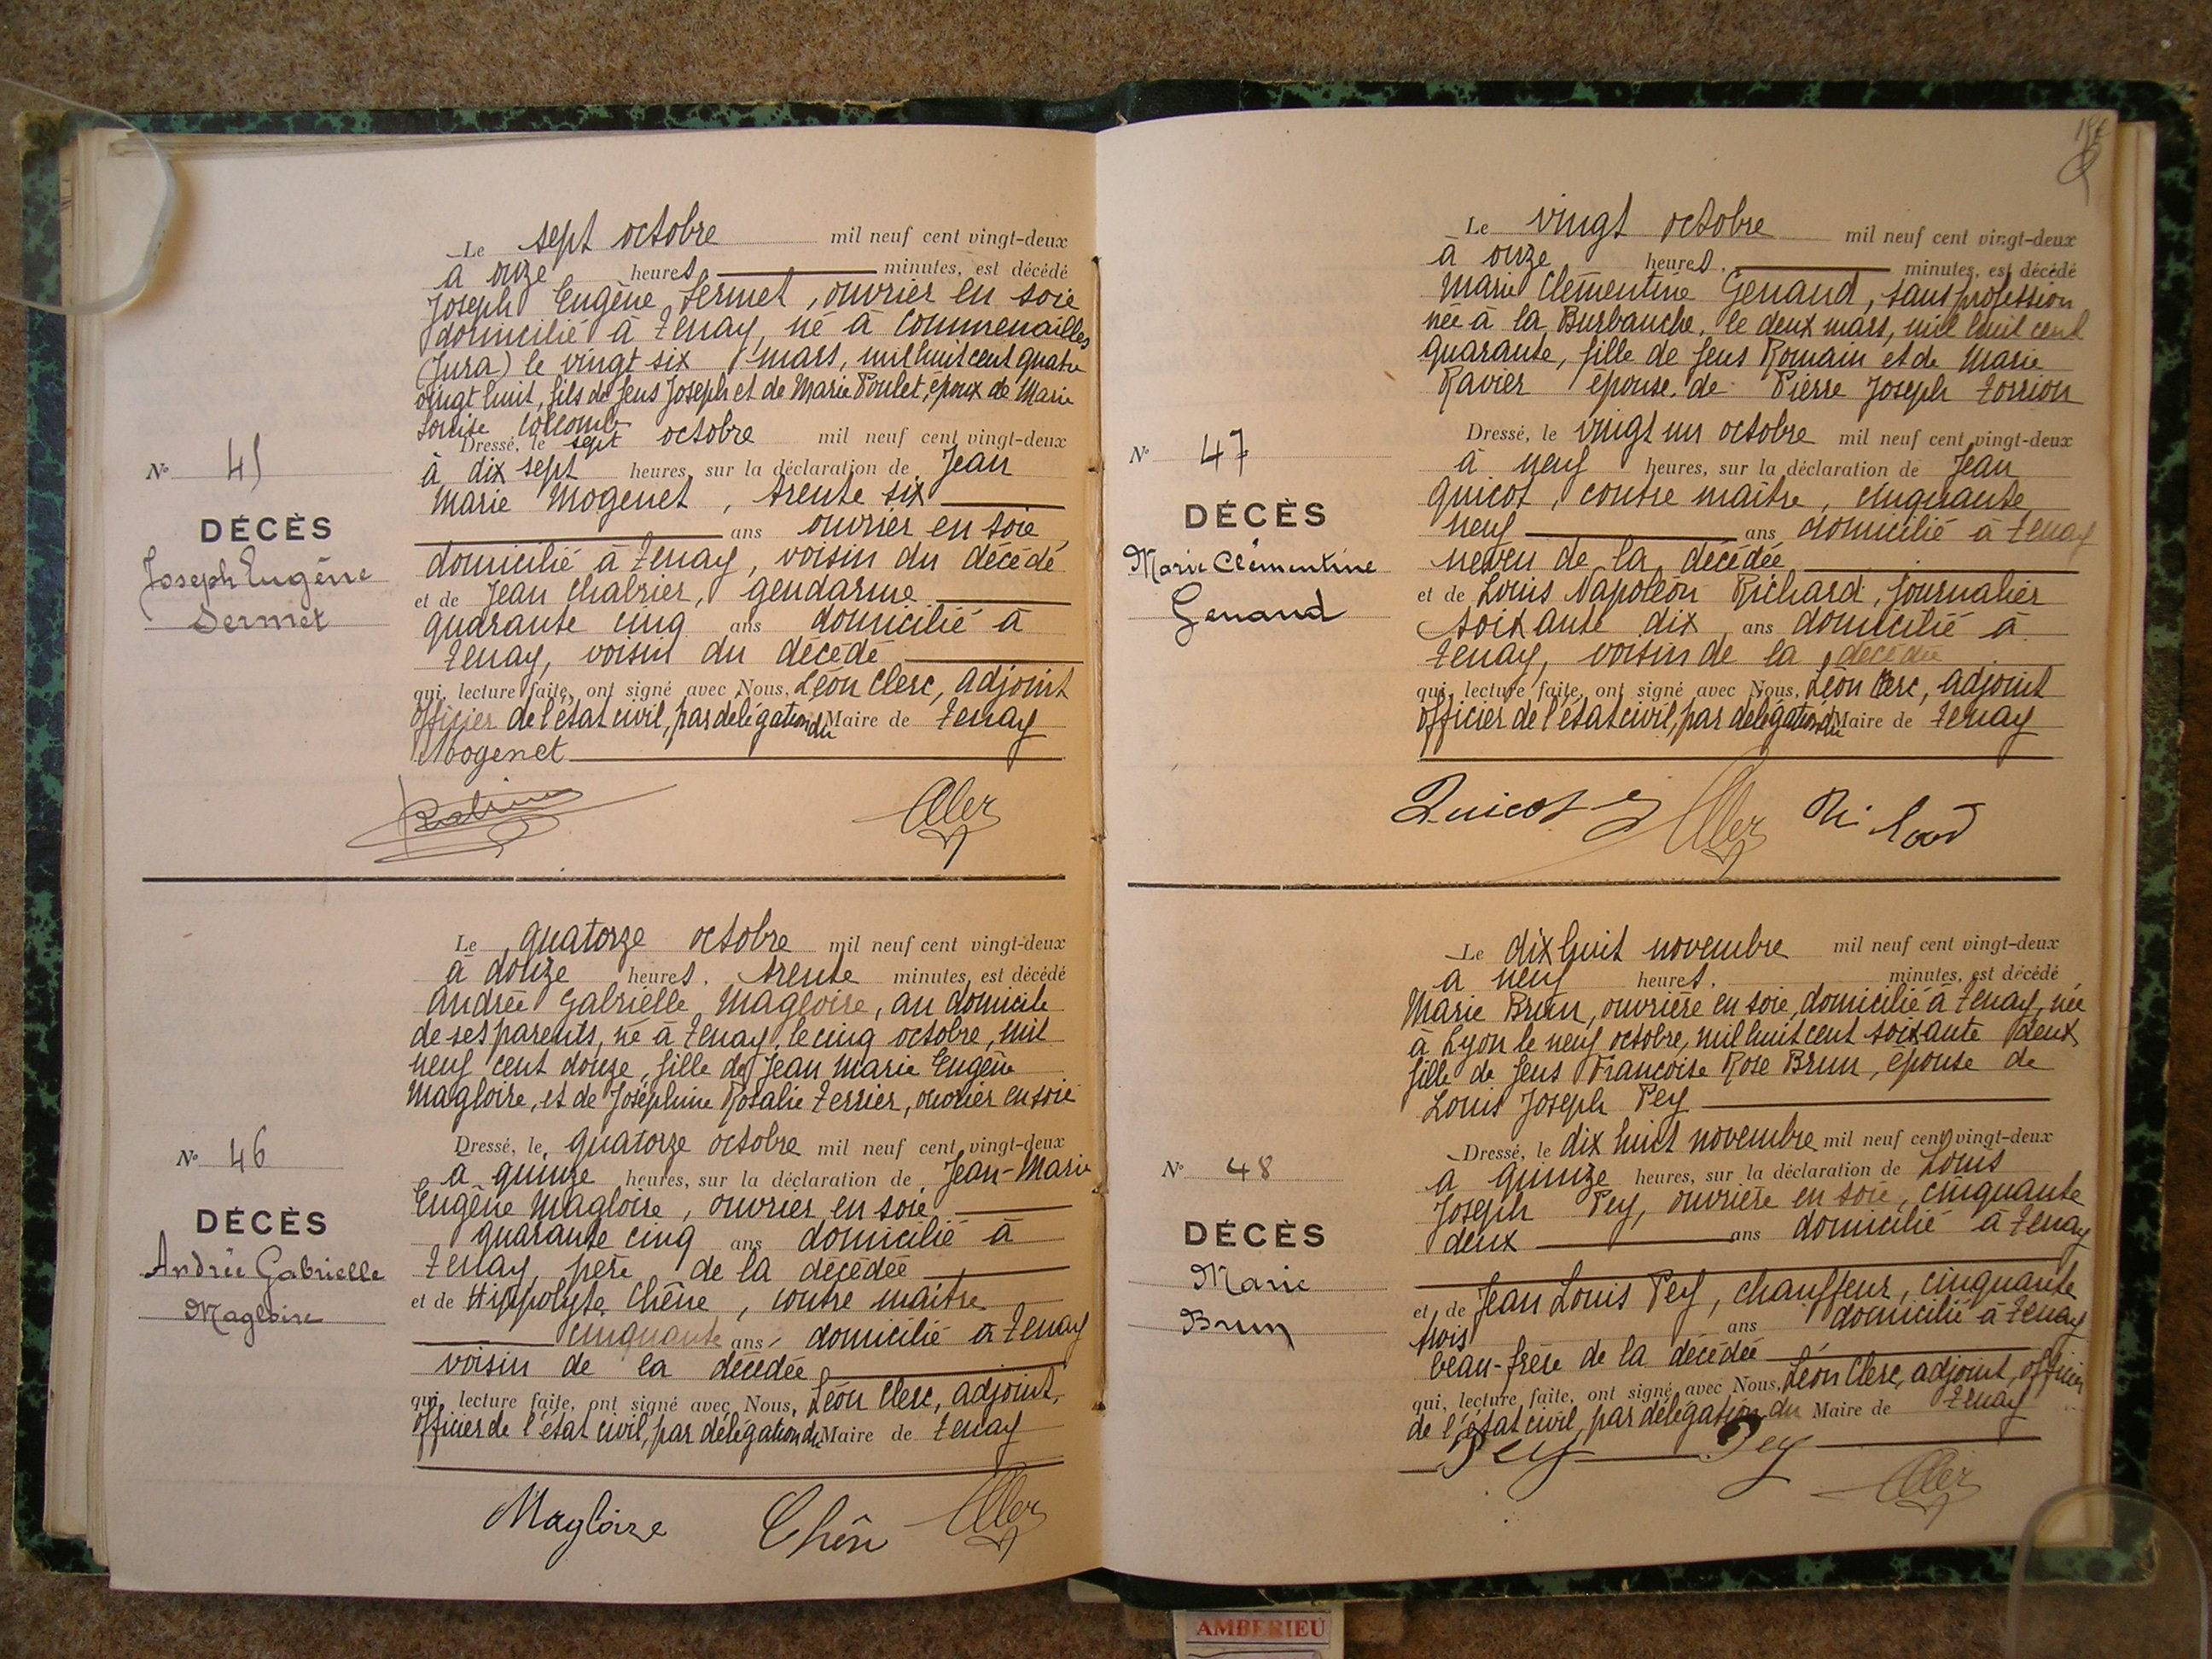 Le sept octobre mil neuf cent vingt-deux
à onze heures, minutes, est décédé
Joseph Eugène Sermet, ouvrier en soie
domicilié à Tenay, né à Commenailles
(Jura) le vingt six mars, mil huit cent quatre
vingt huit, fils de feus Joseph et de Marie Poulet, époux de Marie
Louise Collomb
Dressé, le sept octobre mil neuf cent vingt-deux
à dix sept heures, sur la déclaration de Jean
Marie Mogenet, trente six
ans ouvrier en soie
domicilié à Tenay, voisin du décédé
et de Jean Chabrier, gendarme
quarante cinq ans domicilié à
Tenay, voisin du décédé
qui, lecture faite, ont signé avec Nous, Léon Clerc, adjoint
officier de l'état civil, par délégation du Maire de Tenay
Mogenet
N° 45
DÉCÈS
Joseph Eugène
Sermet
Le quatorze octobre mil neuf cent vingt-deux
à douze heures, trente minutes, est décédé
Andrée Gabrielle Magloire, au domicile
de ses parents, né à Tenay, le cinq octobre, mil
neuf cent douze, fille de Jean Marie Eugène
Magloire, et de Joséphine Rosalie Terrier, ouvrier en soie
Dressé, le quatorze octobre mil neuf cent vingt-deux
à quinze heures, sur la déclaration de Jean-Marie
Eugène Magloire, ouvrier en soie
quarante cinq ans domicilié à
Tenay, père de la décédée
et de Hippolyte Chêne, contre maître
cinquante ans, domicilié à Tenay
voisin de la décédée
qui, lecture faite, ont signé avec Nous, Léon Clerc, adjoint,
officier de l'état civil, par délégation du Maire de Tenay
Magloire Chêne Clerc
N° 46
DÉCÈS
Andrée Gabrielle
Magloire
Le vingt octobre mil neuf cent vingt-deux
à onze heures, minutes, est décédé
Marie Clémentine Genaud, sans profession
née à la Burbanche, le deux mars, mil huit cent
quarante, fille de feus Romain et de Marie
Ravier épouse de Pierre Joseph
Dressé, le vingt un octobre mil neuf cent vingt-deux
à neuf heures, sur la déclaration de Jean
Quicot, contre maître, cinquante
neuf ans domicilié à Tenay
neveu de la décédée
et de Louis Napoléon Richard, journalier
soixante dix ans domicilié à
Tenay, voisin de la décédée
qui, lecture faite, ont signé avec Nous, Léon Clerc, adjoint
officier de l'état civil, par délégation du Maire de Tenay
Quicot Clerc Richard
N° 47
DÉCÈS
Marie Clémentine
Genaud
Le dix huit novembre mil neuf cent vingt-deux
à neuf heures, minutes, est décédé
Marie Brun, ouvrière en soie, domicilié à Tenay, née
à Lyon le neuf octobre, mil huit cent soixante deux
fille de feus Françoise Rose Brun, épouse de
Louis Joseph Pey
Dressé, le dix huit novembre mil neuf cent vingt-deux
à quinze heures, sur la déclaration de Louis
Joseph Pey, ouvrière en soie, cinquante
deux ans domicilié à Tenay
et de Jean Louis Pey, chauffeur, cinquante
trois ans domicilié à Tenay
beau-frère de la décédée
qui, lecture faite, ont signé avec Nous, Léon Clerc, adjoint, officier
de l'état civil, par délégation du Maire de Tenay
Pey Pey Clerc
N° 48
DÉCÈS
Marie
Brun
AMBERIEU